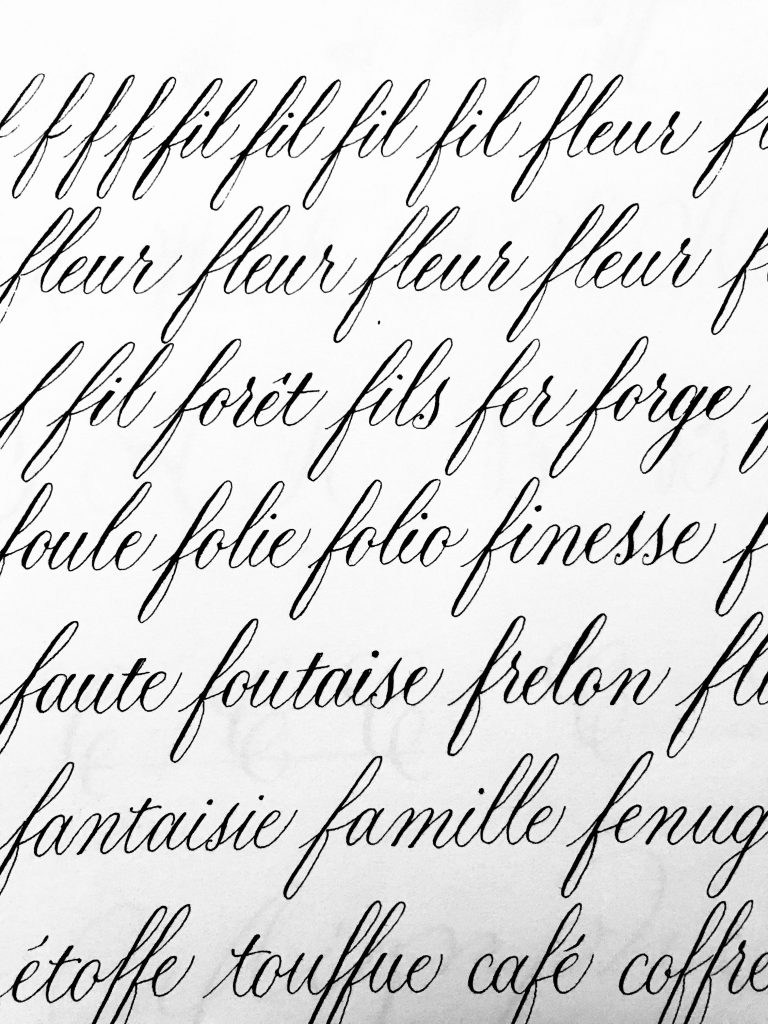 f f f f fil fil fil fil fleur
fleur fleur fleur fleur
f fil forêt fils fer forge
foule folie folio finesse
faute foutaise frelon
fantaisie famille fenug
étoffe touffue café coffre